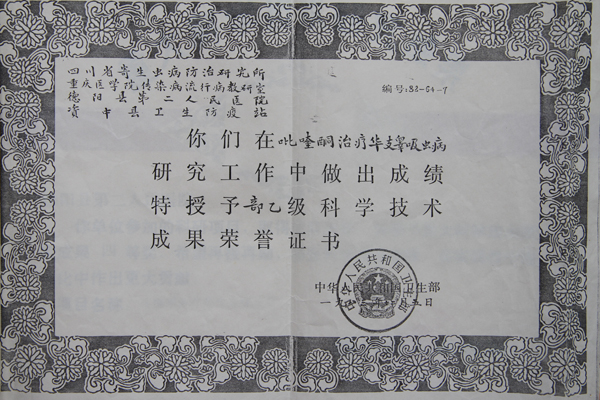 四川省寄生虫病防治研究所
重庆医学院传染病流行病教研室
德阳县第二人民医院
资中县卫生防疫站
编号:83-54-7
你们在吡喹酮治疗华支睾吸虫病
研究工作中做出成绩
特授予部乙级科学技术
成果荣誉证书
中华人民共和国卫生部
中华人民共和国卫生部